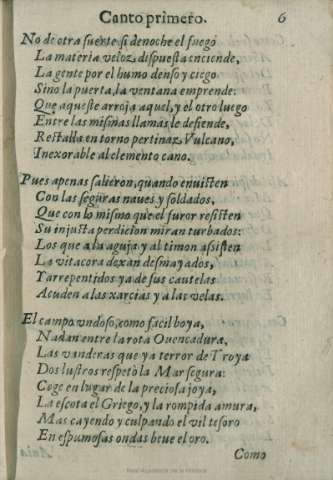 Canto primero. 6
No de otra suerte si denoche el fuego
La materia veloz, dispuesta enciende,
La gente por el humo denso y ciego
Sino la puerta, la ventana emprende:
Que aqueste arroja aquel, y el otro luego
Entre las mismas llamas le defiende,
Restalla en torno pertinaz Vulcano,
Inexorable al elemento cano.
Pues apenas salieron, quando enuisten
Con las seguras naues y soldados,
Que con lo mismo que el furor resisten
Su injusta perdicion miran turbados:
Los que a la aguja y al timon asisten
La vitacora dexan desmayados,
Y arrepentidos ya de sus cautelas
Acuden a las xarcias y a las velas.
El campo undoso, como facil boya,
Nadan entre la rota Ouencadura,
Las vanderas que ya terror de Troya
Dos lustros respetò la Mar segura:
Coge en lugar de la preciosa joya,
La escota el Griego, y la rompida amura,
Mas cayendo y culpando el vil tesoro
En espumosas ondas beue el oro.
Como